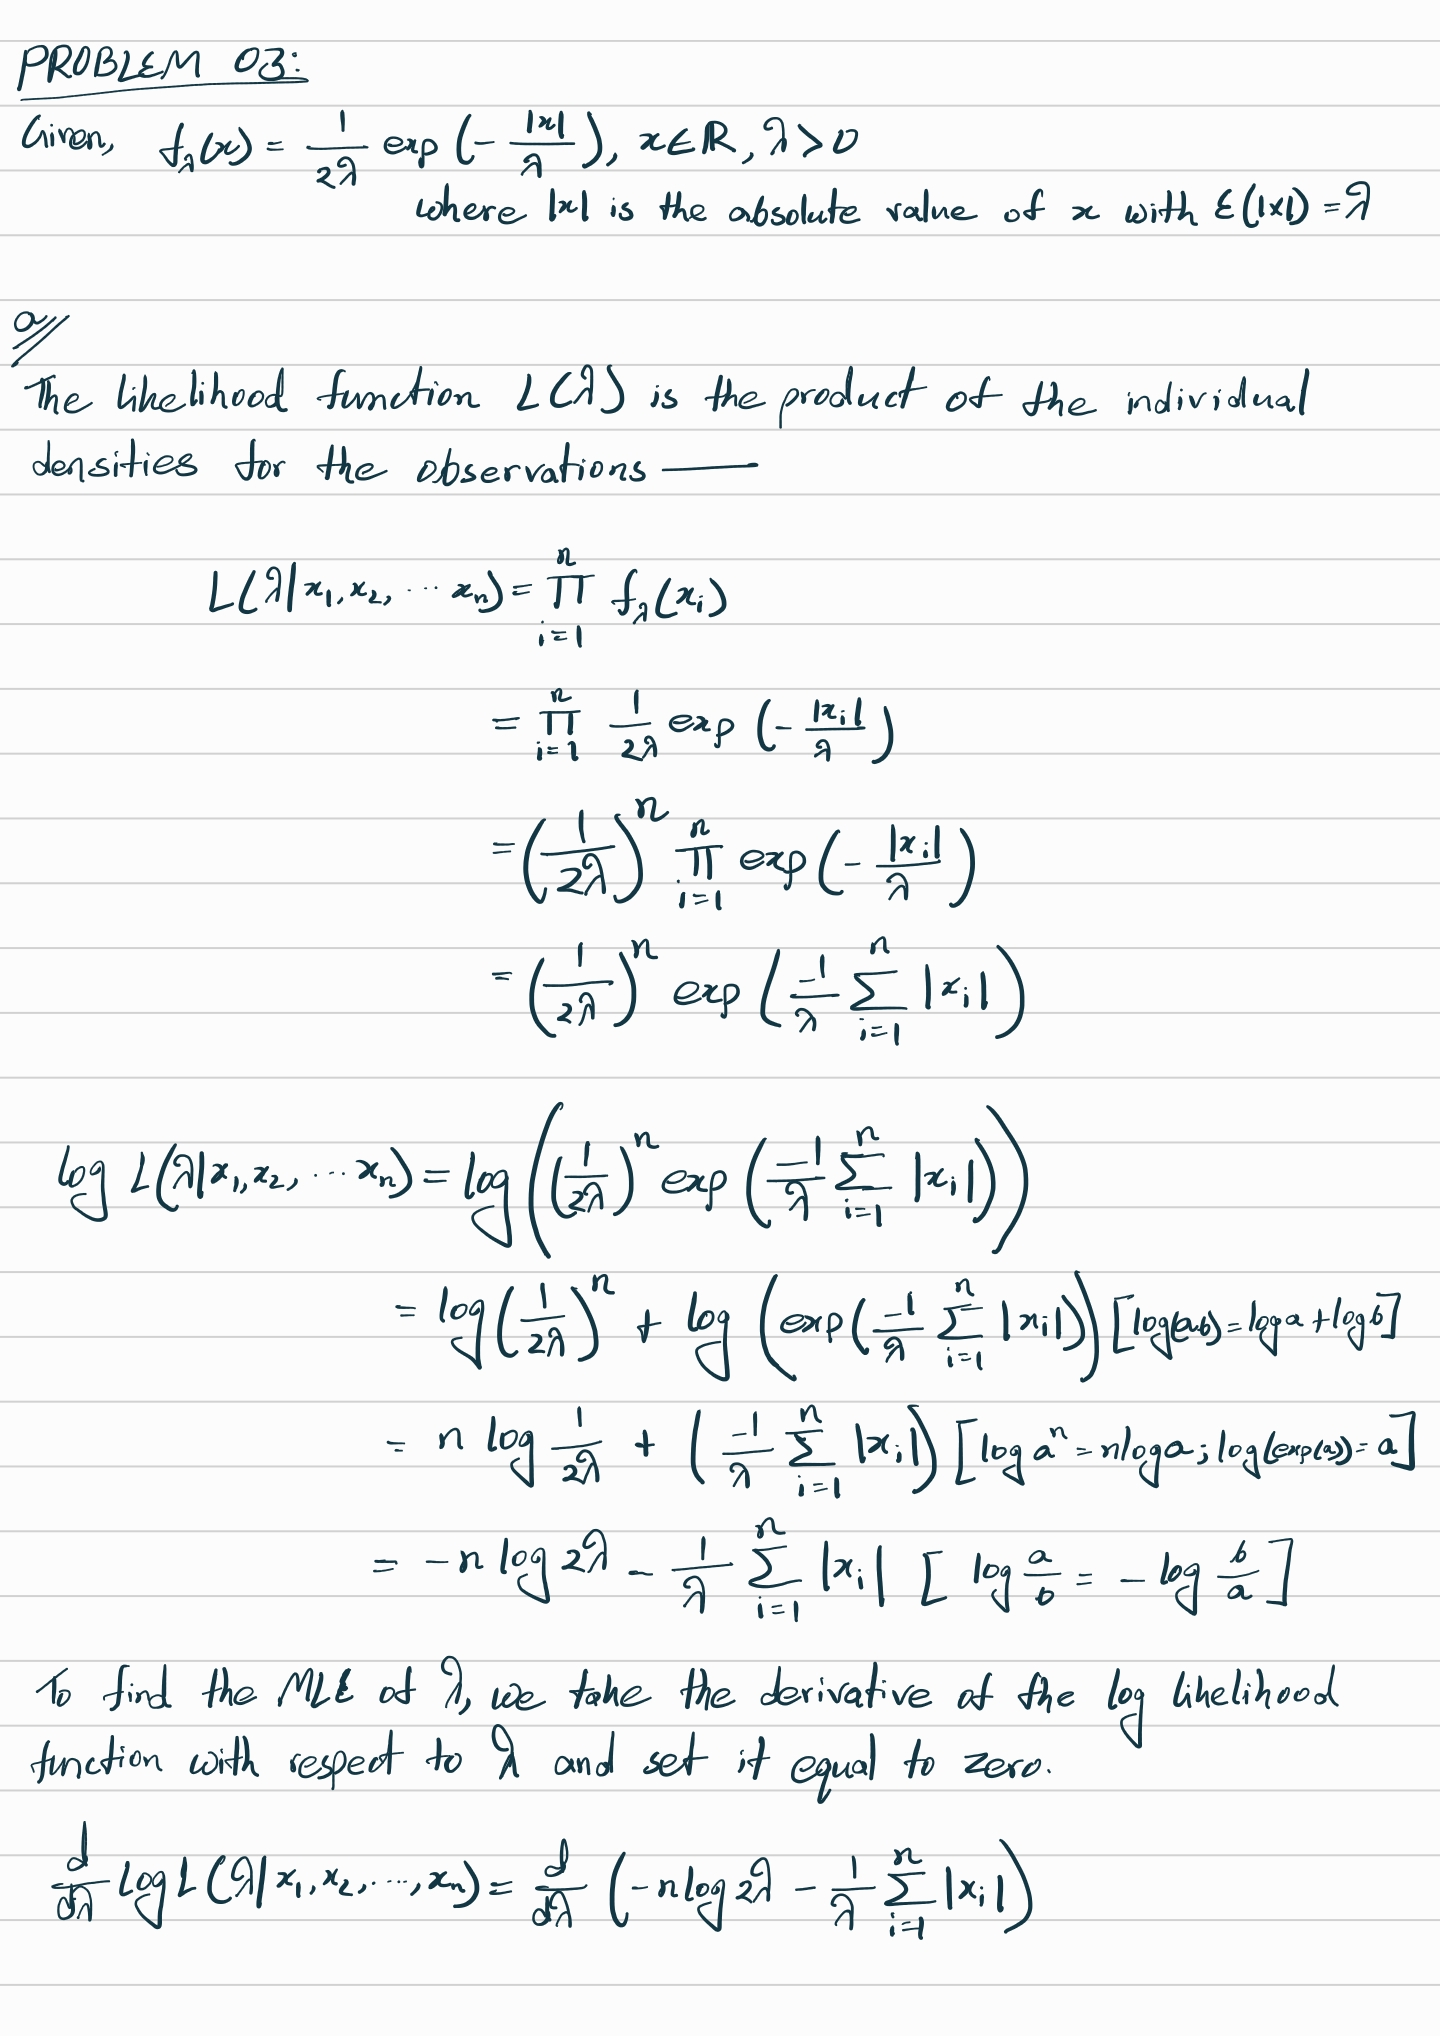 PROBLEM 03:
Given, f_λ(x) = 1/2λ exp (- |x|/λ), x ∈ ℝ, λ > 0
where |x| is the absolute value of x with E(|x|) = λ
a//
The likelihood function L(λ) is the product of the individual
densities for the observations —
L(λ|x₁, x₂, ... xₙ) = ∏_{i=1}^{n} f_λ(xᵢ)
= ∏_{i=1}^{n} 1/2λ exp (- |xᵢ|/λ)
= (1/2λ)^n ∏_{i=1}^{n} exp (- |xᵢ|/λ)
= (1/2λ)^n exp (-1/λ ∑_{i=1}^{n} |xᵢ|)
log L(λ|x₁, x₂, ... xₙ) = log ((1/2λ)^n exp (-1/λ ∑_{i=1}^{n} |xᵢ|))
= log (1/2λ)^n + log (exp (-1/λ ∑_{i=1}^{n} |xᵢ|)) [log(ab) = log a + log b]
= n log 1/2λ + (-1/λ ∑_{i=1}^{n} |xᵢ|) [log a^n = n log a ; log(exp(a)) = a]
= - n log 2λ - 1/λ ∑_{i=1}^{n} |xᵢ| [log a/b = - log b/a]
To find the MLE of λ, we take the derivative of the log likelihood
function with respect to λ and set it equal to zero.
d/dλ Log L(λ|x₁, x₂, ..., xₙ) = d/dλ (- n log 2λ - 1/λ ∑_{i=1}^{n} |xᵢ|)